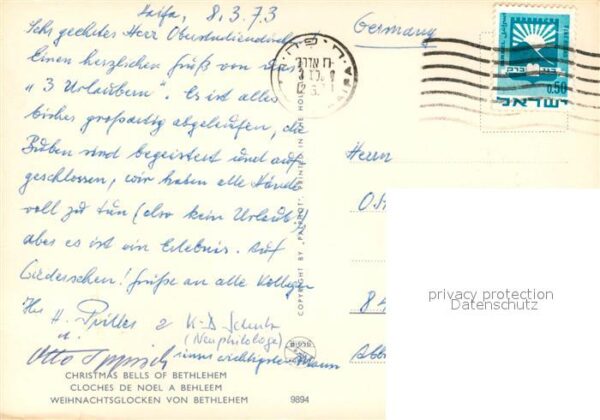 Haifa, 8.3.73
Sehr geehrter Herr Oberstudiendirektor
Einen herzlichen Gruß von den
"3 Urlaubern". Es ist alles
bisher großartig abgelaufen, die
Buben sind begeistert und auf-
geschlossen, wir haben alle Hände
voll zu tun (also kein Urlaub)
aber es ist ein Erlebnis. Auf
Wiedersehen! Grüße an alle Kollegen
Ihr H.
(Neuphilologe)
Otto
unser wichtigster Mann
CHRISTMAS BELLS OF BETHLEHEM
CLOCHES DE NOEL A BEHLEEM
WEIHNACHTSGLOCKEN VON BETHLEHEM
9894
COPYRIGHT BY "PALPHOT" PRINTED IN THE HOL
Germany
חיפה
0.50
ישראל
Herrn
privacy protection
Datenschutz